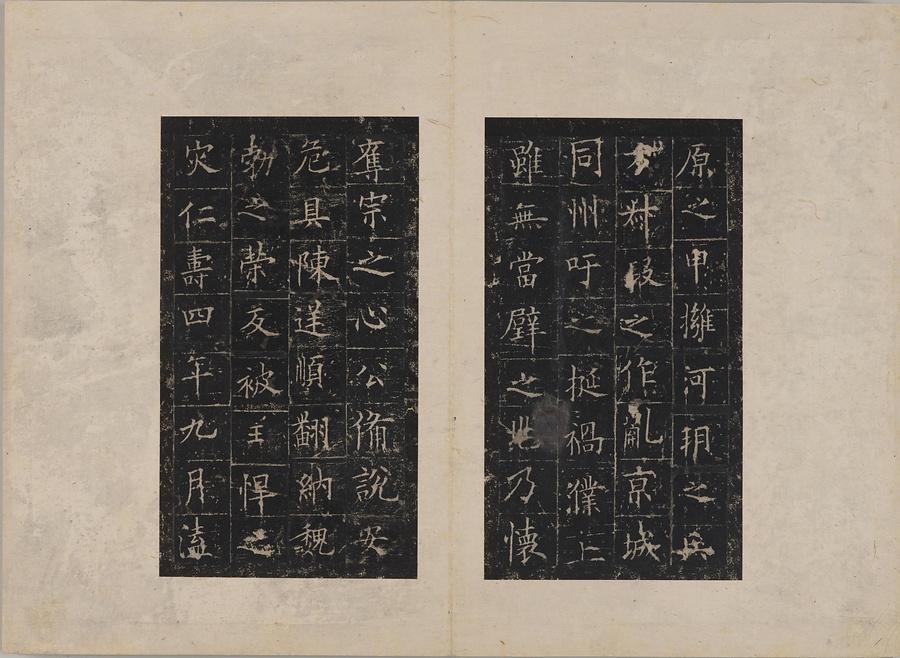 原之甲擁河朔之兵
方叔段之作亂京城
同州吁之挺禍濮上
雖無當璧之兆乃懷
奪宗之心公備說安
危具陳逆順翻納魏
勃之榮反被王悍之
灾仁壽四年九月溘